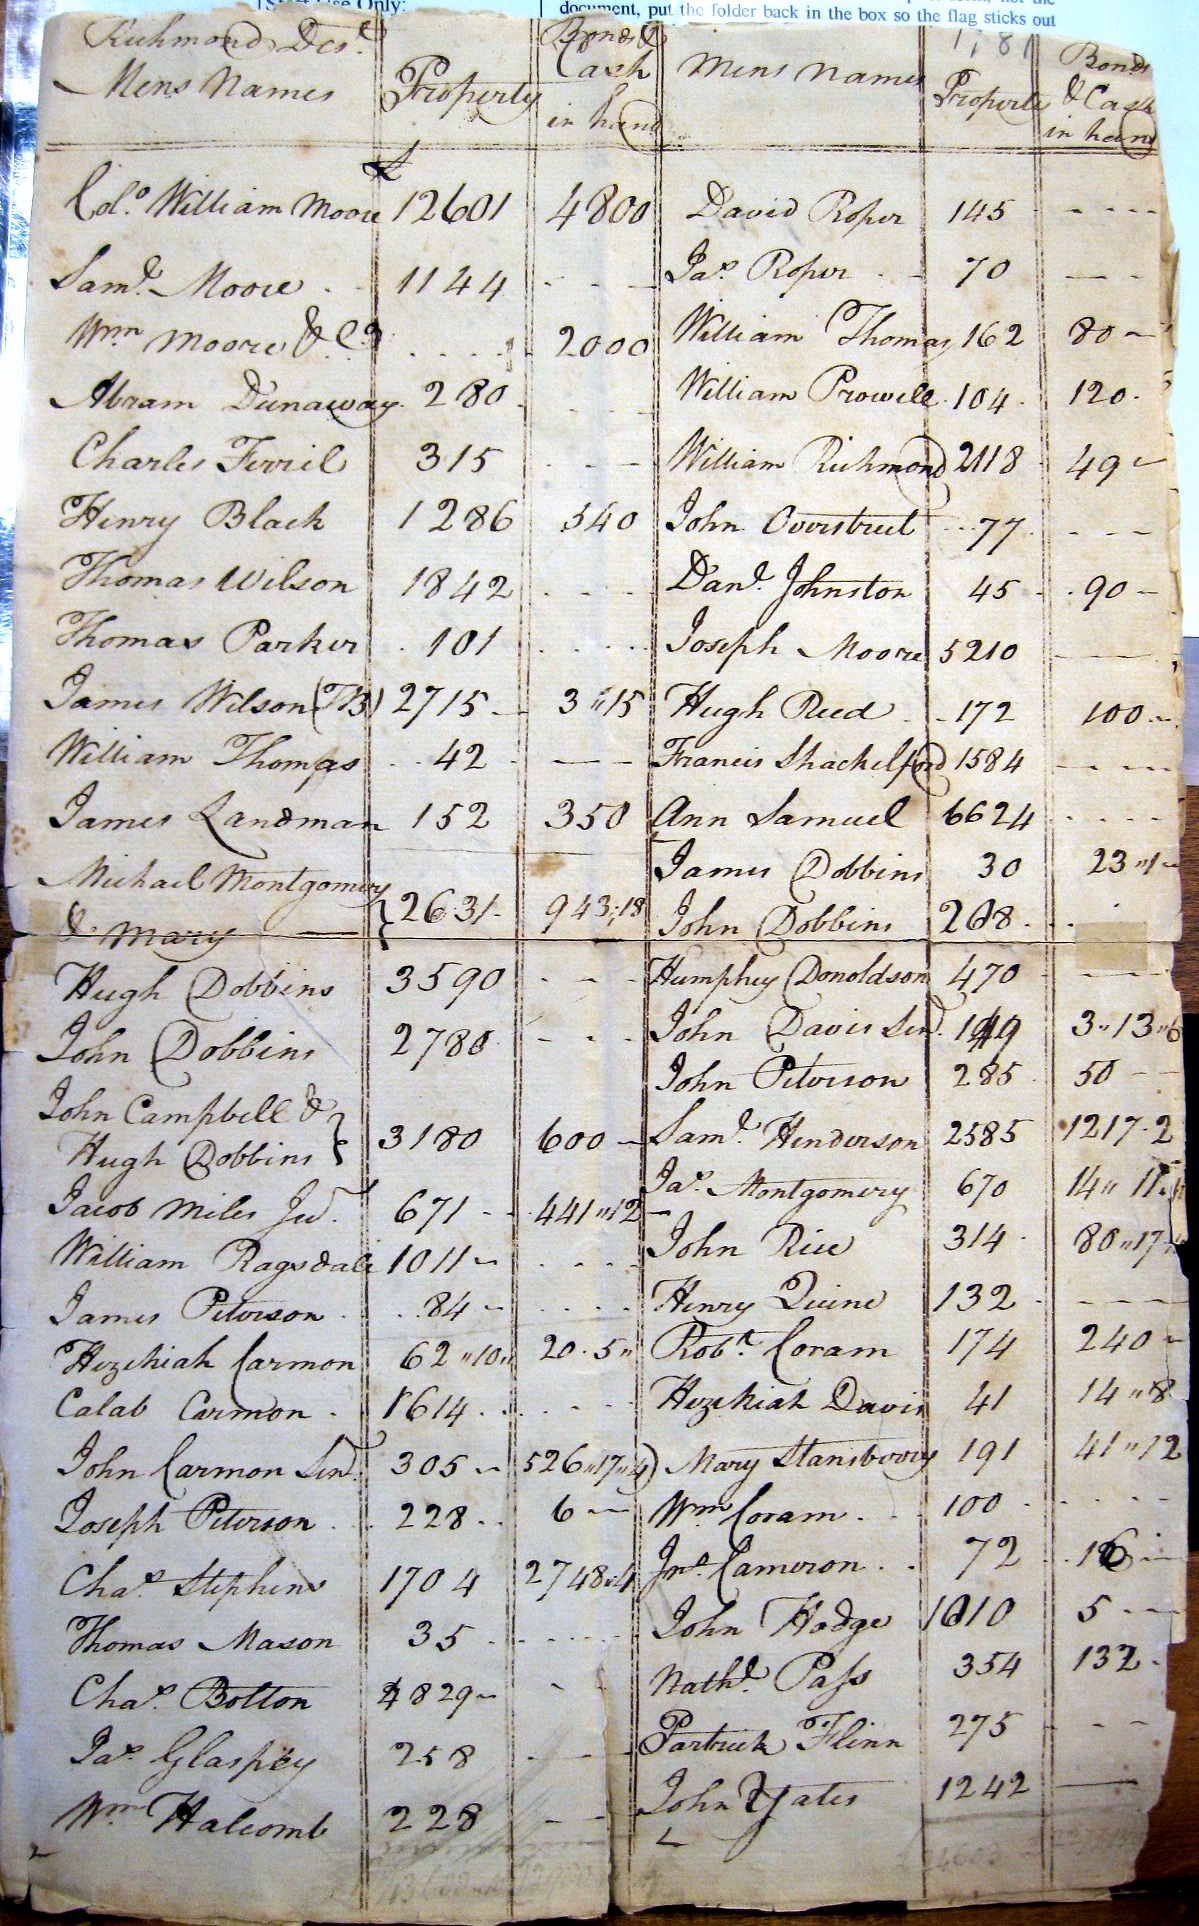 Staff Use Only:
document, put the folder back in the box so the flag sticks out
Richmond Dist.
Mens Names Property Bonds & Cash in hand
£
Colo. William Moore 12601 4800
Saml. Moore 1144 - - -
Wm Moore & Co . . . . 2000
Abram Dunaway 280 - - -
Charles Ferril 315 - - -
Henry Black 1286 540
Thomas Wilson 1842 - - -
Thomas Parker 101 . . . .
James Wilson (TB) 2715 3"15
William Thomas 42 - - -
James Landman 152 350
Michael Montgomery
& Mary } 2631 943"18
Hugh Dobbins 3590 - - -
John Dobbins 2780 - - -
John Campbell &
Hugh Dobbins } 3180 600 -
Jacob Miles Jur. 671 - 441"12
William Ragsdale 1011 - . . . .
James Peterson 84 - . . . .
Hezekiah Carmon 62"10" 20.5"
Calab Carmon 1614 . . . .
John Carmon Senr. 305 - 526"17"4
Joseph Peterson 228 . . 6 -
Chas. Stephens 1704 2748"4
Thomas Mason 35 - - - -
Chas. Botton 4829 - - -
Jas. Glaspey 258 - - -
Wm. Halcomb 228 - -
1781
Mens Names Property Bonds & Cash in hand
David Roper 145 - - - -
Jas. Roper 70 - - -
William Thomas 162 80 -
William Prowell 104 120.
William Richmond 2118 49 -
John Overstreet 77 - - -
Danl. Johnston 45 90 -
Joseph Moore 5210 ——
Hugh Reed 172 100 -
Francis Shackelford 1584 - - - -
Ann Samuel 6624 . . . .
James Dobbins 30 23"1 -
John Dobbins 268 . . .
Humphey Donoldson 470 - - -
John Davis Senr. 3"13"6
John Peterson 285 50 - -
Saml. Henderson 2585 1217.2
Jas. Montgomery 670 14"11
John Rice 314 80"17
Henry Quine 132 - - - -
Robt. Coram 174 240 -
Hezekiah Davis 41 14"8
Mary Stansberry 191 41"12
Wm Coram 100 . . . .
Jno. Cameron 72
John Hodge 1010 5 - -
Nathl. Pass 354 132.
Partrick Flinn 275 - - -
John Yates 1242 ——